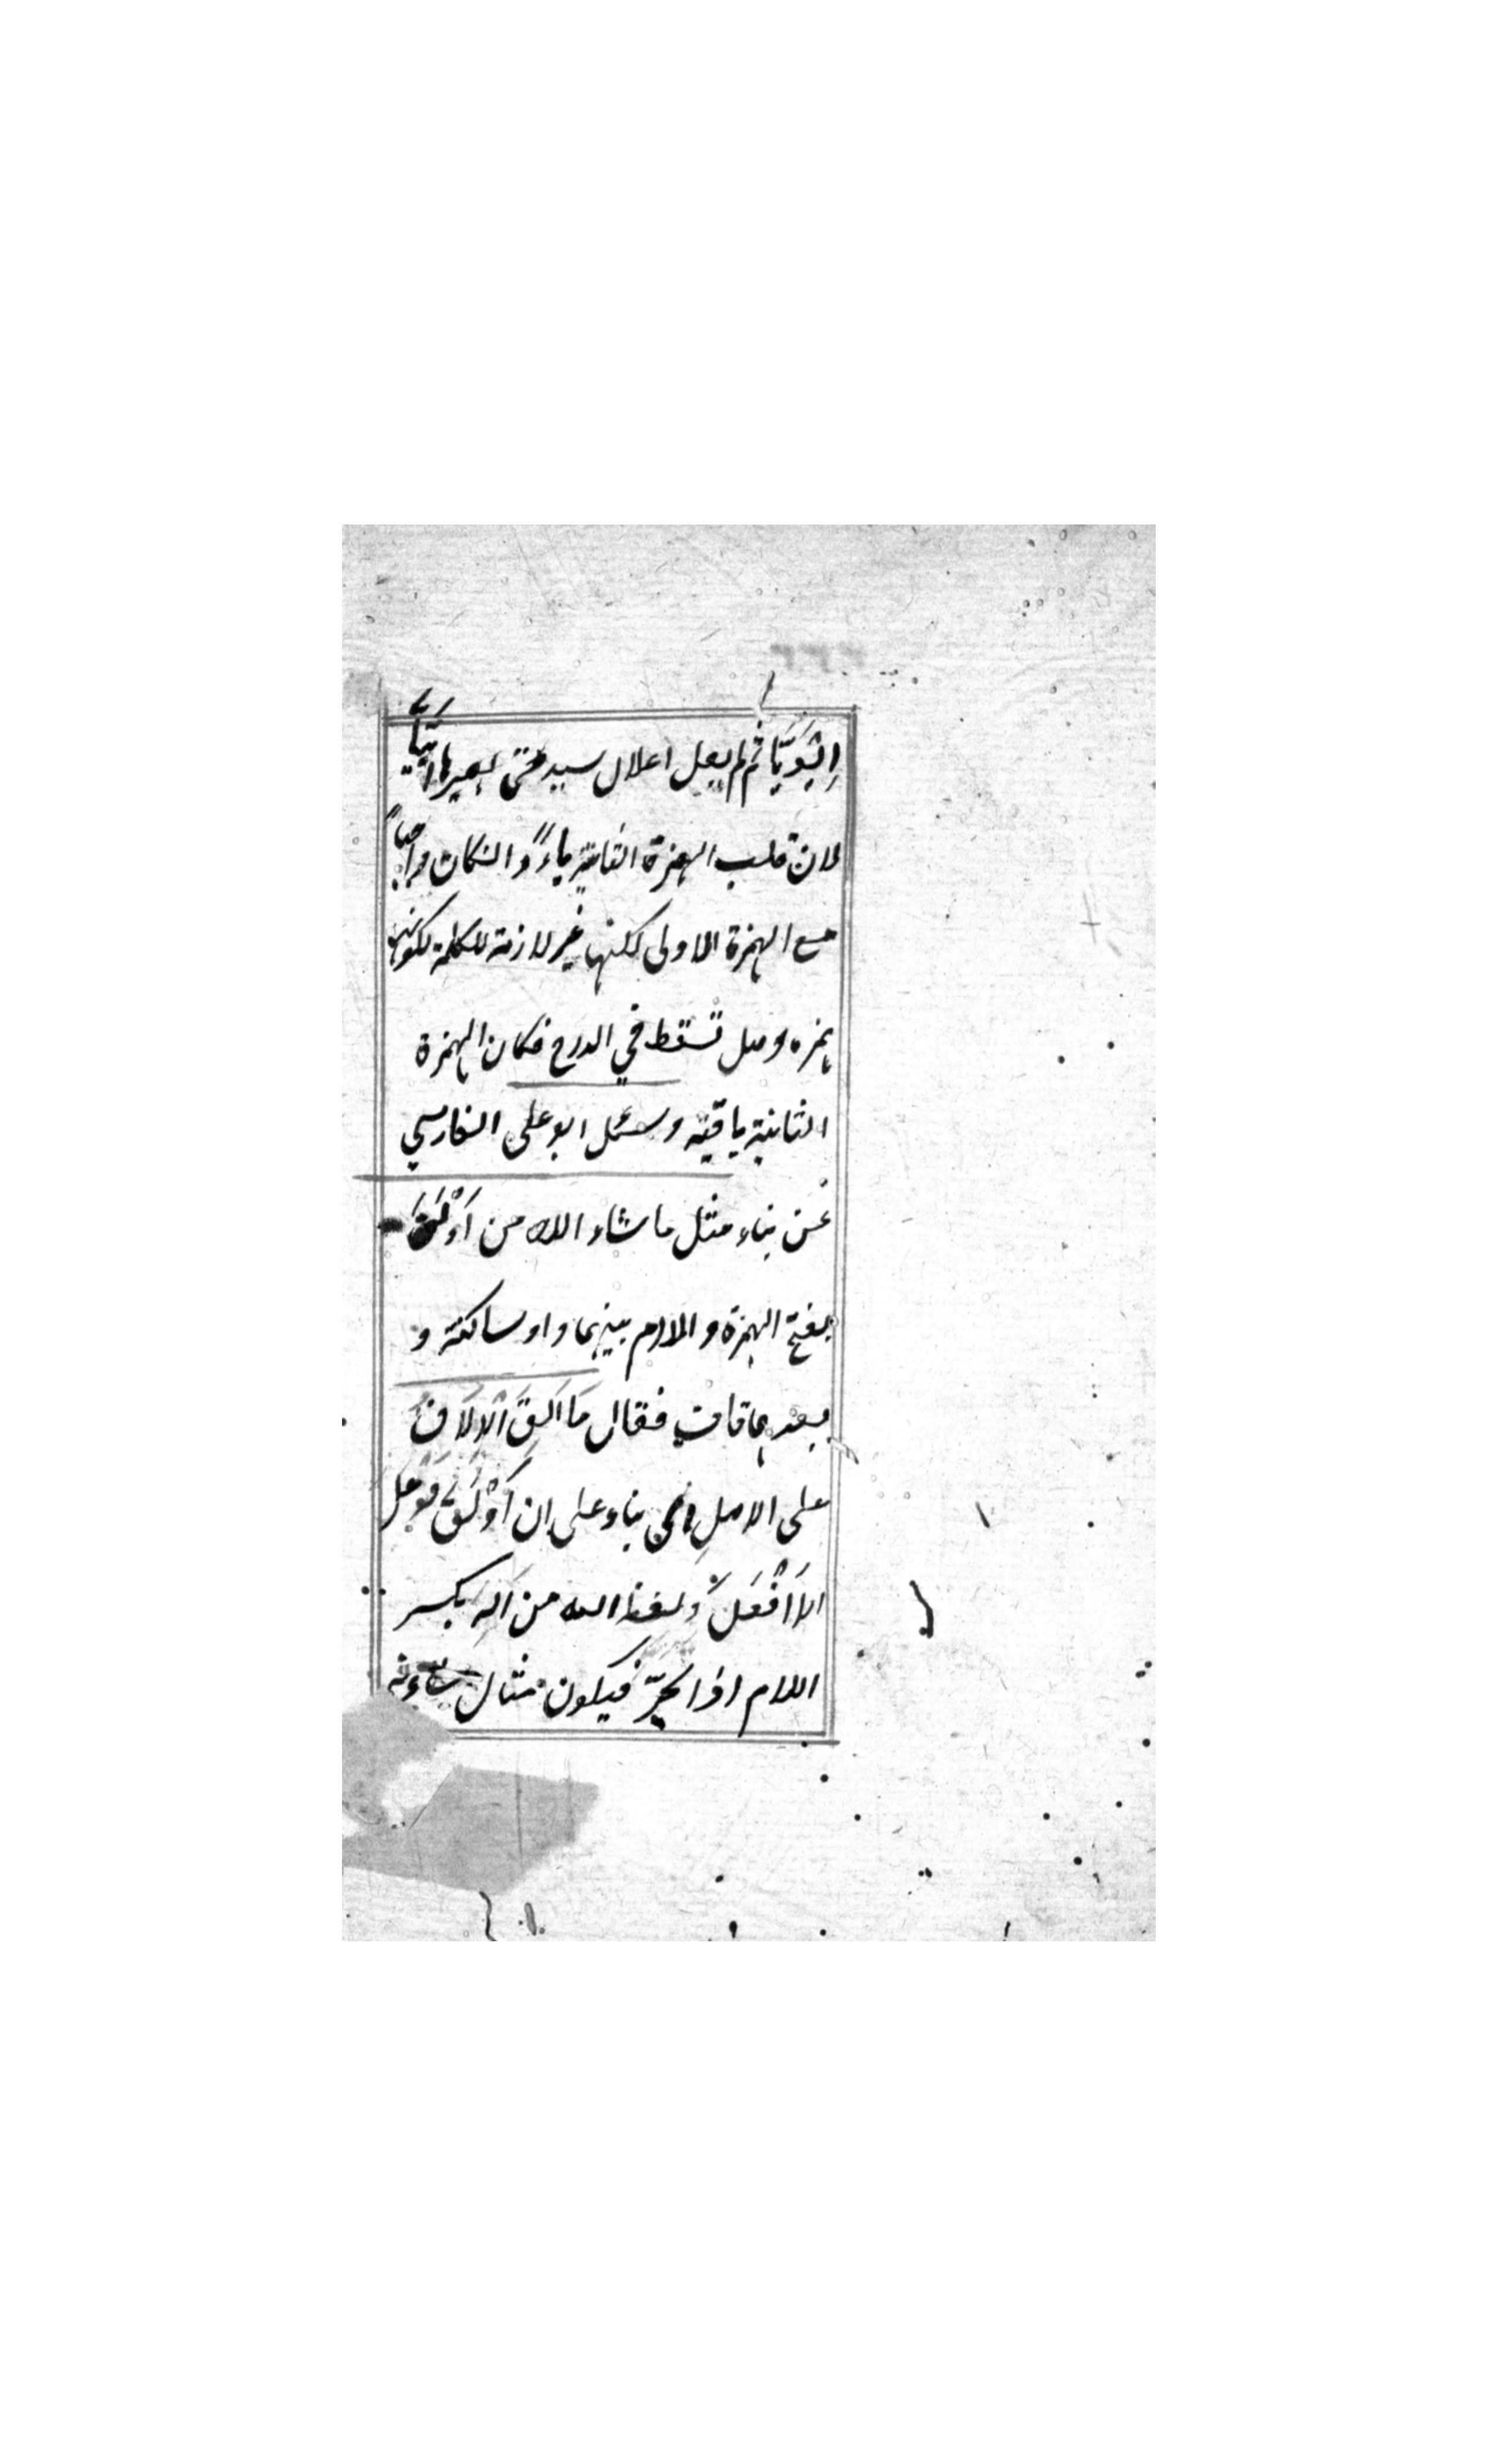 اِيْوَيَّا ثم لم يعل اعلال سيد حتى يصير اِيَّيا
لان قلب الهمزة الثانية ياءً و ان كان واجباً
مع الهمزة الاولى لكنها غير لازمة للكلمة لكونها
همزه وصل تسقط في الدرج فكان الهمزة
الثانية باقية وسئل ابو على الفارسي
عن بناء مثل ما شاء الله من اَوْلَق
بفتح الهمزة و اللام بينهما واو ساكنة و
بعدهما قاف فقال مَا اَلِقَ اَلْاِلَاقُ
على الاصل بناء على ان اَوْلَق فَوْعَل
لا اَفْعَل و لفظ الله من اَلِه بكسر
اللام فيكون مثال شاء منه